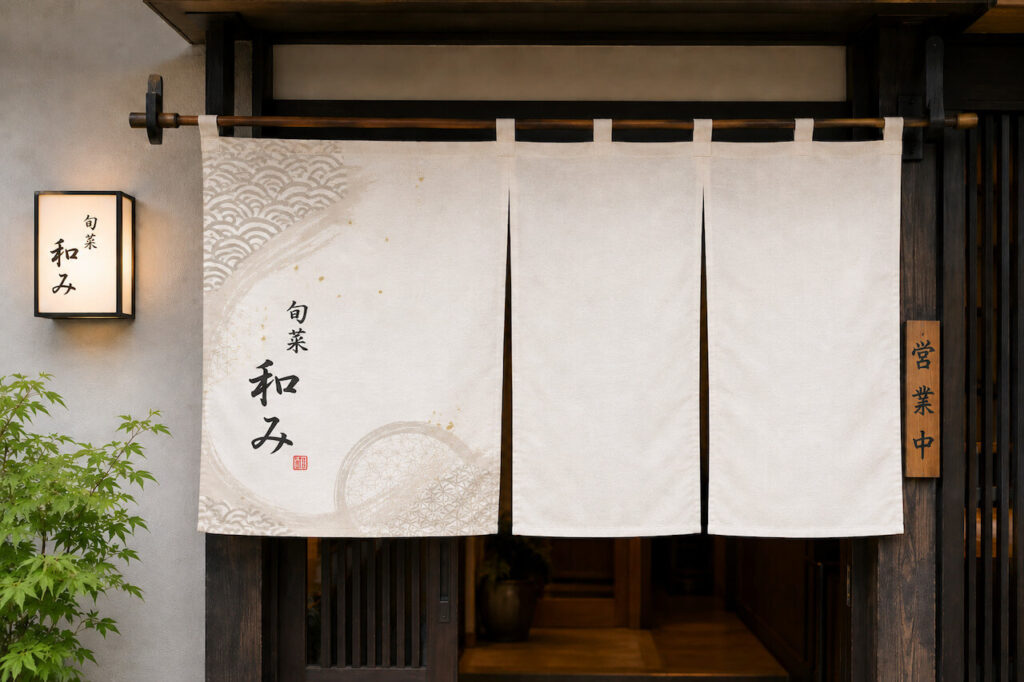 旬菜
和み
旬菜
和み
営業中